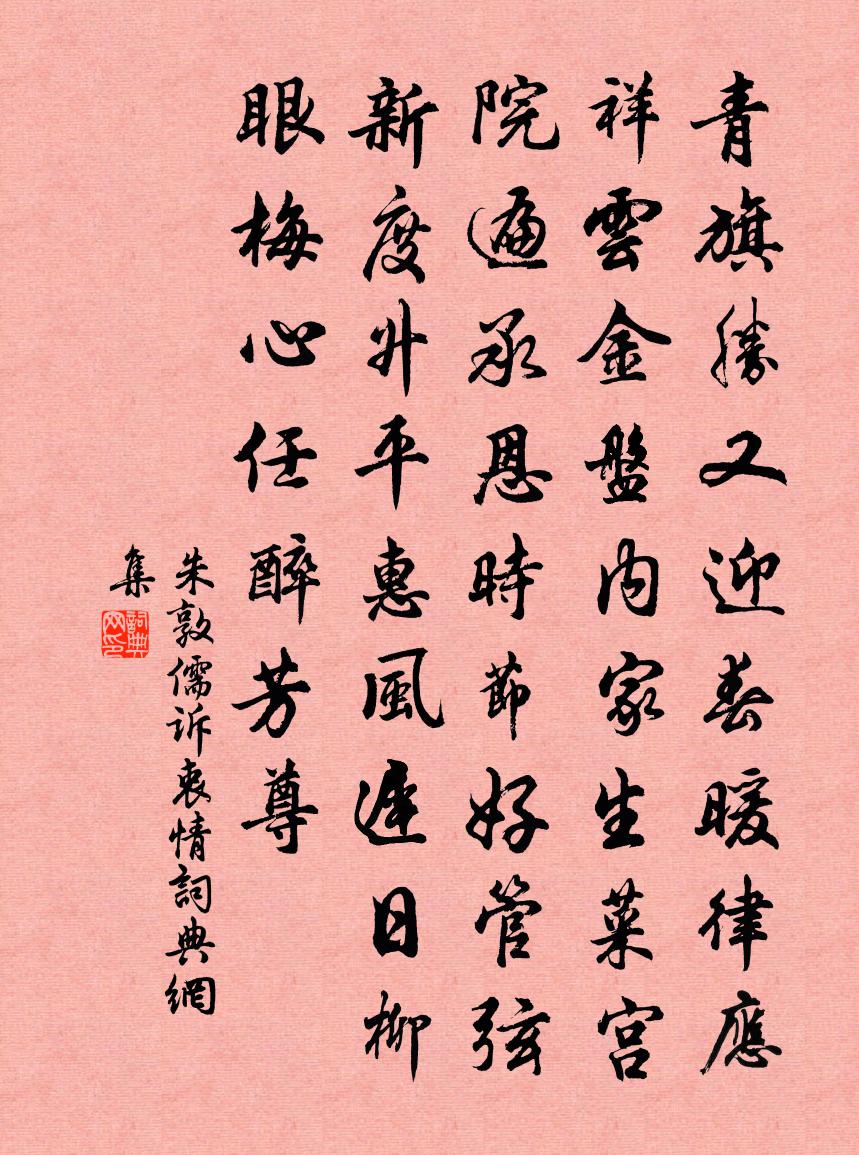 青旗勝又迎春暖律應
祥雲金盤內家生菜宮
院遍承恩時節好管弦
新度升平惠風遲日柳
眼梅心任醉芳尊
朱敦儒訴衷情詞典網
集
詞典網印